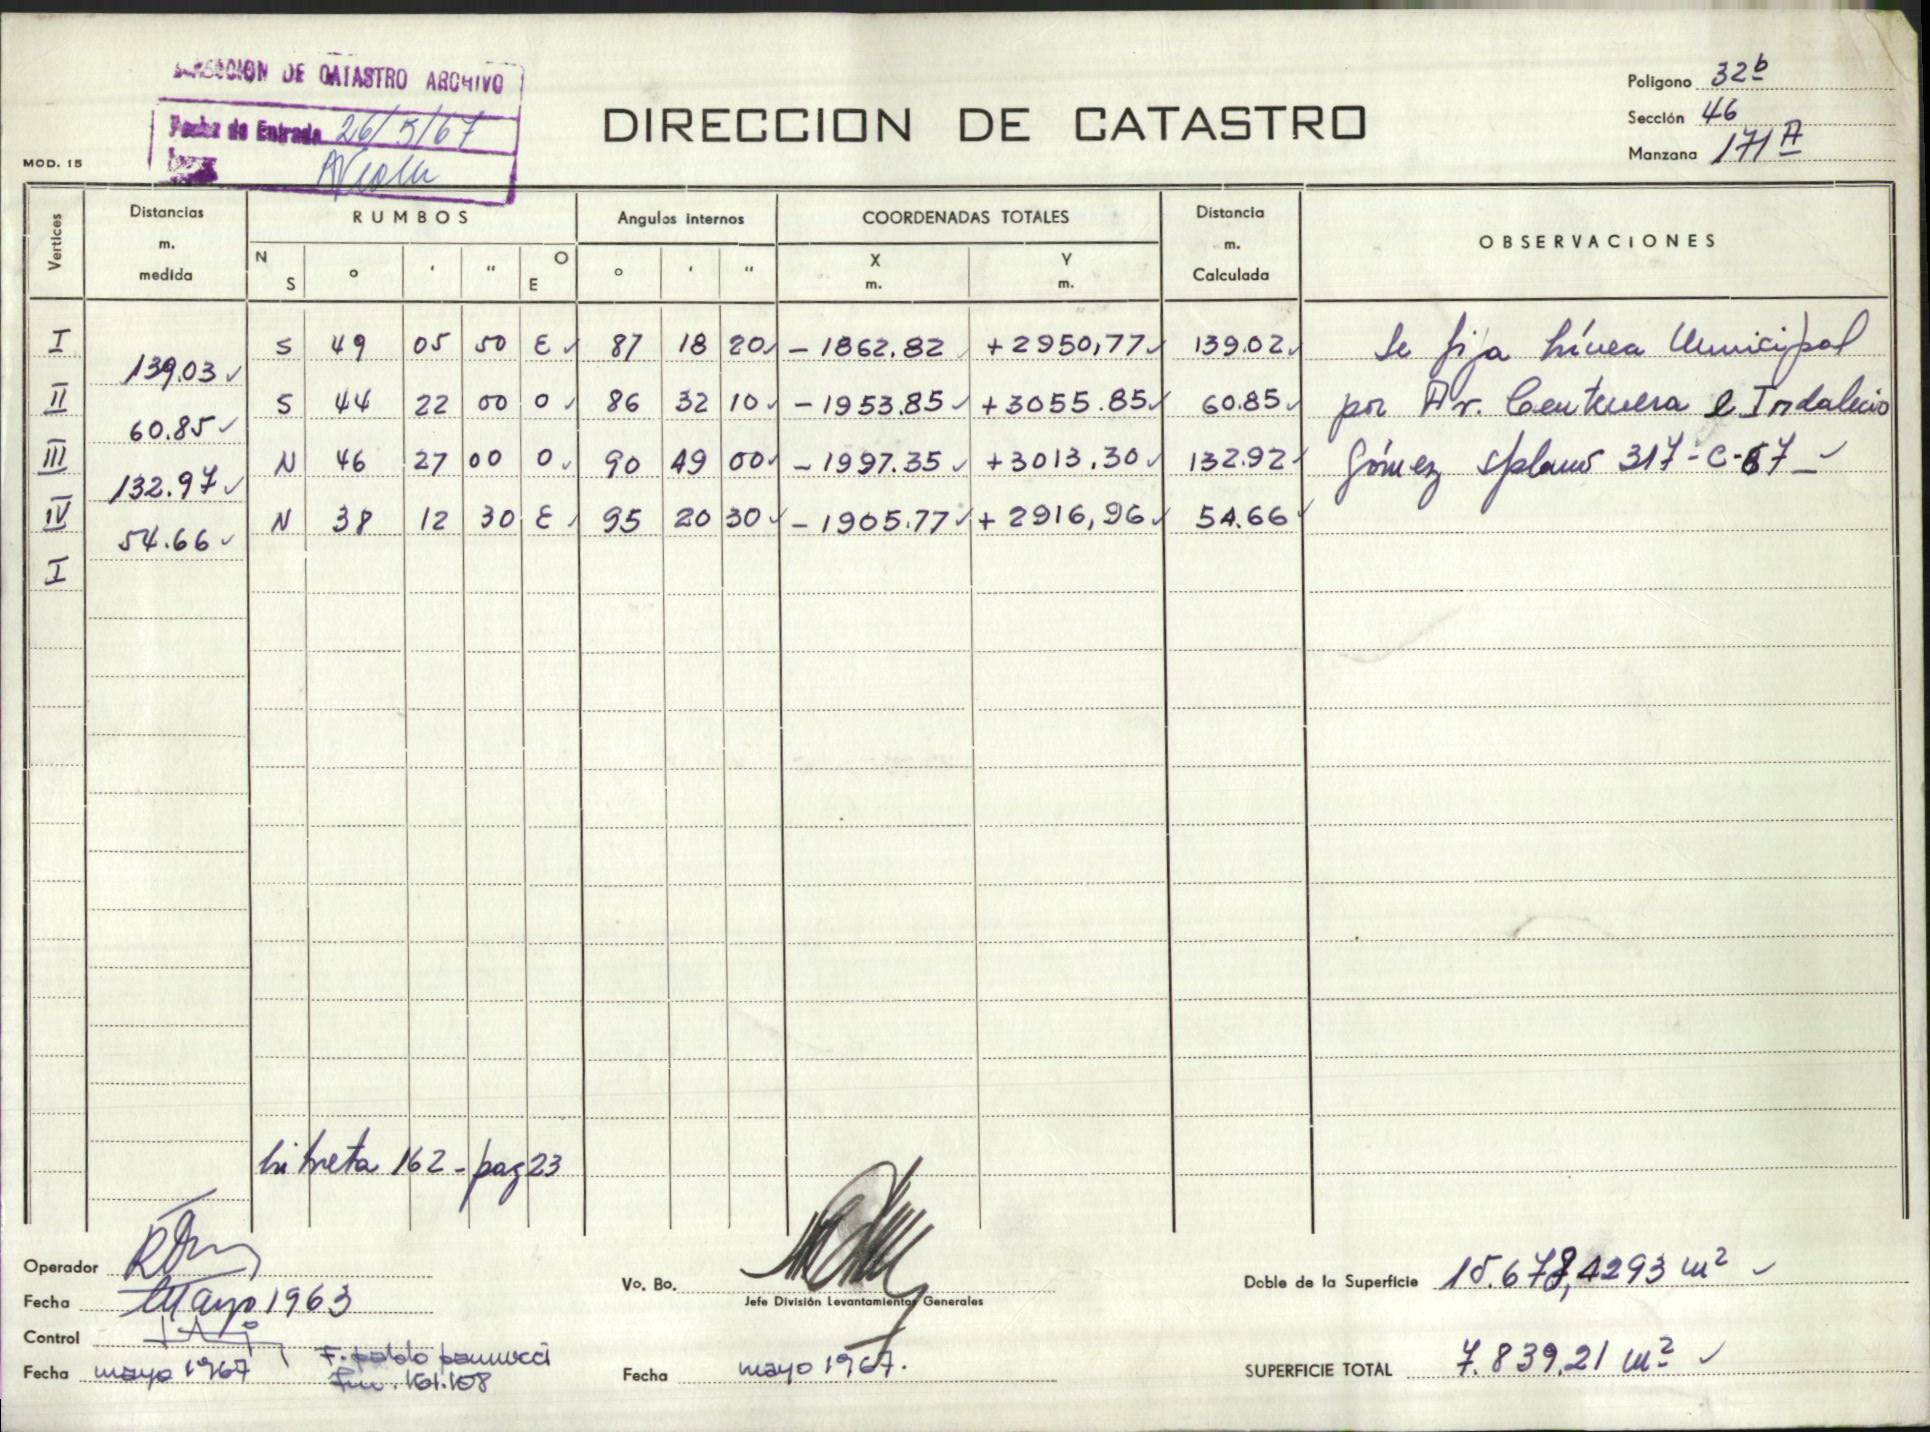 DIRECCION DE CATASTRO ARCHIVO
Fecha de Entrada 26/5/67
DIRECCION DE CATASTRO
Poligono 32b
Sección 46
Manzana 171 A
MOD. 15
Vertices Distancias m. medida RUMBOS Angulos internos COORDENADAS TOTALES Distancia m. Calculada OBSERVACIONES
N S ° ' " O E ° ' " X m. Y m.
I S 49 05 50 E 87 18 20 -1862.82 +2950,77 139.02 Se fija Línea Municipal
139.03
II S 44 22 00 O 86 32 10 -1953.85 +3055.85 60.85 por Av. Centenera e Indalecio
60.85
III N 46 27 00 O 90 49 00 -1997.35 +3013.30 132.92 Gómez s/plano 317-C-67
132.97
IV N 38 12 30 E 95 20 30 -1905.77 +2916,96 54.66
54.66
I
Libreta 162 - pag 23
Operador
Fecha Mayo 1963
Control
Fecha mayo 1967
Vo. Bo.
Jefe División Levantamientos Generales
Fecha mayo 1967.
Doble de la Superficie 15.678,4293 m²
SUPERFICIE TOTAL 7.839,21 m²